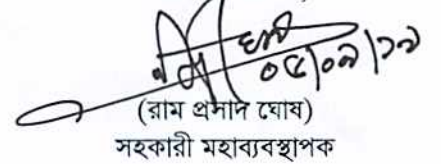 ০৫/০৯/১৯
(রাম প্রসাদ ঘোষ)
সহকারী মহাব্যবস্থাপক